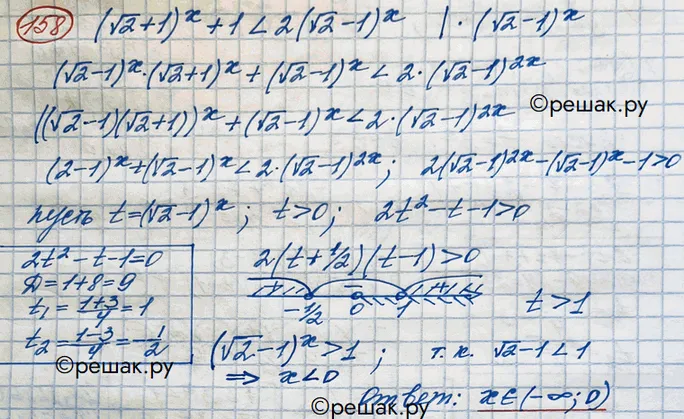 158 (√2+1)^x + 1 < 2(√2-1)^x | · (√2-1)^x
(√2-1)^x · (√2+1)^x + (√2-1)^x < 2 · (√2-1)^2x
©решак.ру
((√2-1)(√2+1))^x + (√2-1)^x < 2 · (√2-1)^2x
(2-1)^x + (√2-1)^x < 2 · (√2-1)^2x ; 2(√2-1)^2x - (√2-1)^x - 1 > 0
пусть t = (√2-1)^x ; t > 0 ; 2t² - t - 1 > 0
2t² - t - 1 = 0
D = 1 + 8 = 9
t₁ = (1+3)/4 = 1
t₂ = (1-3)/4 = -1/2
©решак.ру
2(t + 1/2)(t - 1) > 0
+ - +
-1/2 0 1 t > 1
(√2-1)^x > 1 ; т.к. √2-1 < 1
⇒ x < 0
Ответ: x ∈ (-∞; 0)
©решак.ру